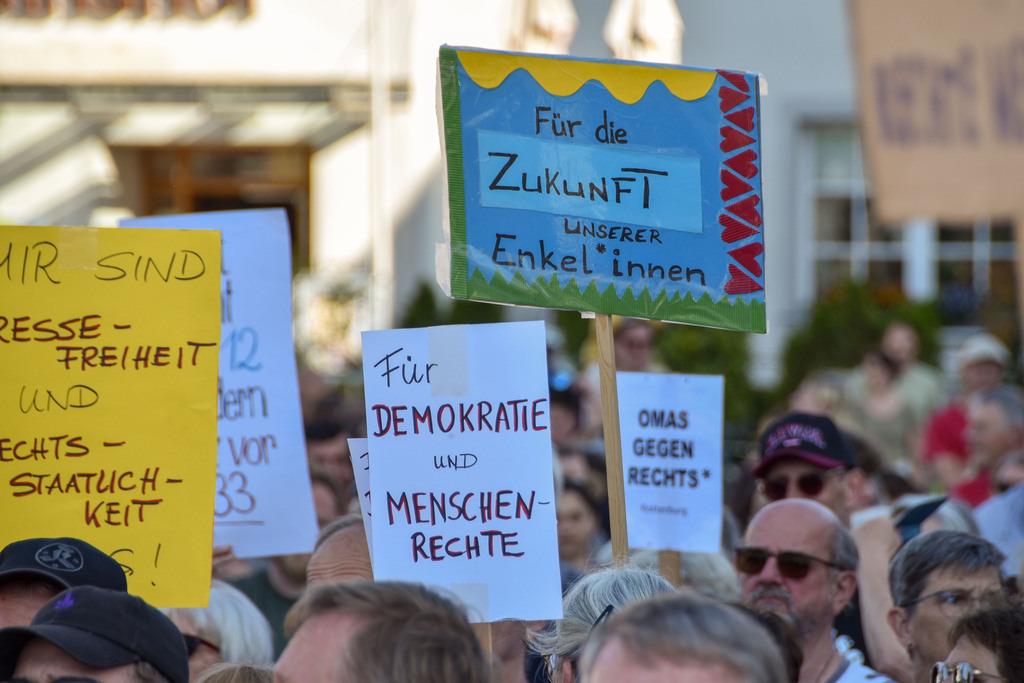 Für die
ZUKUNFT
UNSERER
Enkel*innen
WIR SIND
RESSE-
FREIHEIT
UND
ECHTS-
STAATLICH-
KEIT
!
12
dern
vor
33
Für
DEMOKRATIE
UND
MENSCHEN-
RECHTE
OMAS
GEGEN
RECHTS*